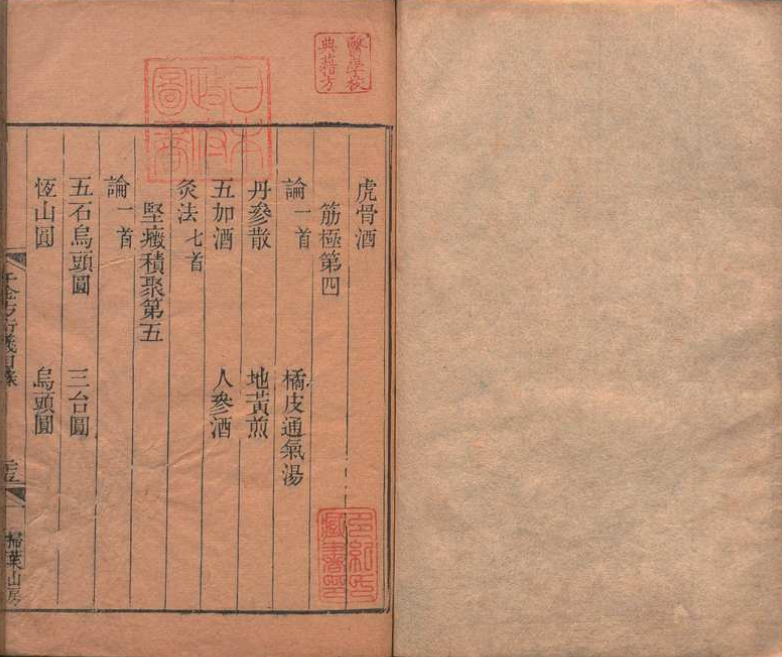 醫學校
典籍方
日本
政府
圖書
虎骨酒
筋極第四
論一首 橘皮通氣湯
丹參散 地黃煎
五加酒 人參酒
灸法七首
堅癥積聚第五
論一首
五石烏頭圓 三台圓
恆山圓 烏頭圓
千金方衍義目錄
掃葉山房